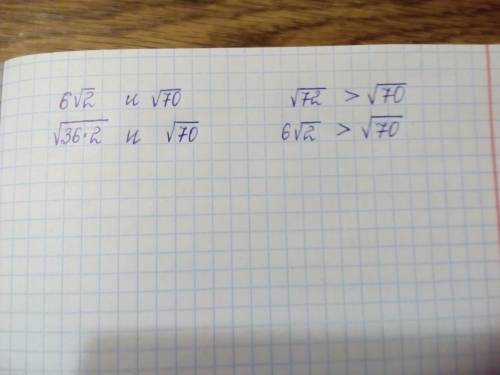 6√2 и √70
√36·2 и √70
√72 > √70
6√2 > √70